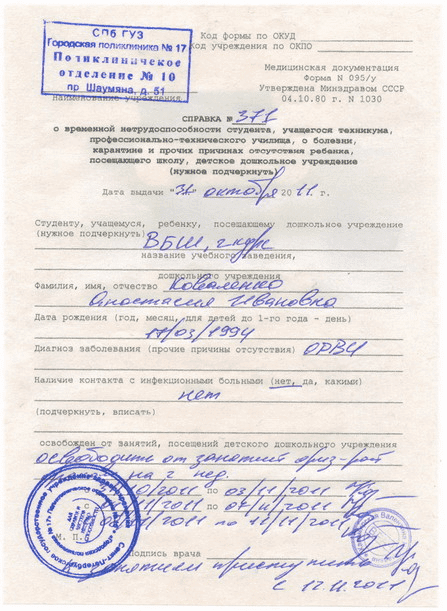 СПб ГУЗ
Городская поликлиника № 17
Поликлиническое
отделение № 10
пр. Шаумяна, д. 51
Код формы по ОКУД
Код учреждения по ОКПО
Медицинская документация
Форма N 095/у
Утверждена Минздравом СССР
04.10.80 г. N 1030
наименование учреждения
СПРАВКА № 371
о временной нетрудоспособности студента, учащегося техникума,
профессионально-технического училища, о болезни,
карантине и прочих причинах отсутствия ребенка,
посещающего школу, детское дошкольное учреждение
(нужное подчеркнуть)
Дата выдачи "31" октября 2011 г.
Студенту, учащемуся, ребенку, посещающему дошкольное учреждение
(нужное подчеркнуть)
ВБШ,
название учебного заведения,
дошкольного учреждения
Фамилия, имя, отчество Коваленко
Анастасия Ивановна
Дата рождения (год, месяц, для детей до 1-го года - день)
17/03/1994
Диагноз заболевания (прочие причины отсутствия) ОРВИ
Наличие контакта с инфекционными больными (нет, да, какими)
нет
(подчеркнуть, вписать)
освобожден от занятий, посещений детского дошкольного учреждения
освободить от занятий физ-рой
на 2 нед.
/2011 по 03/11/2011
/2011 по
/2011 по 11/11/2011
М. П.
Подпись врача
занятиям приступить
с 12.11.2011